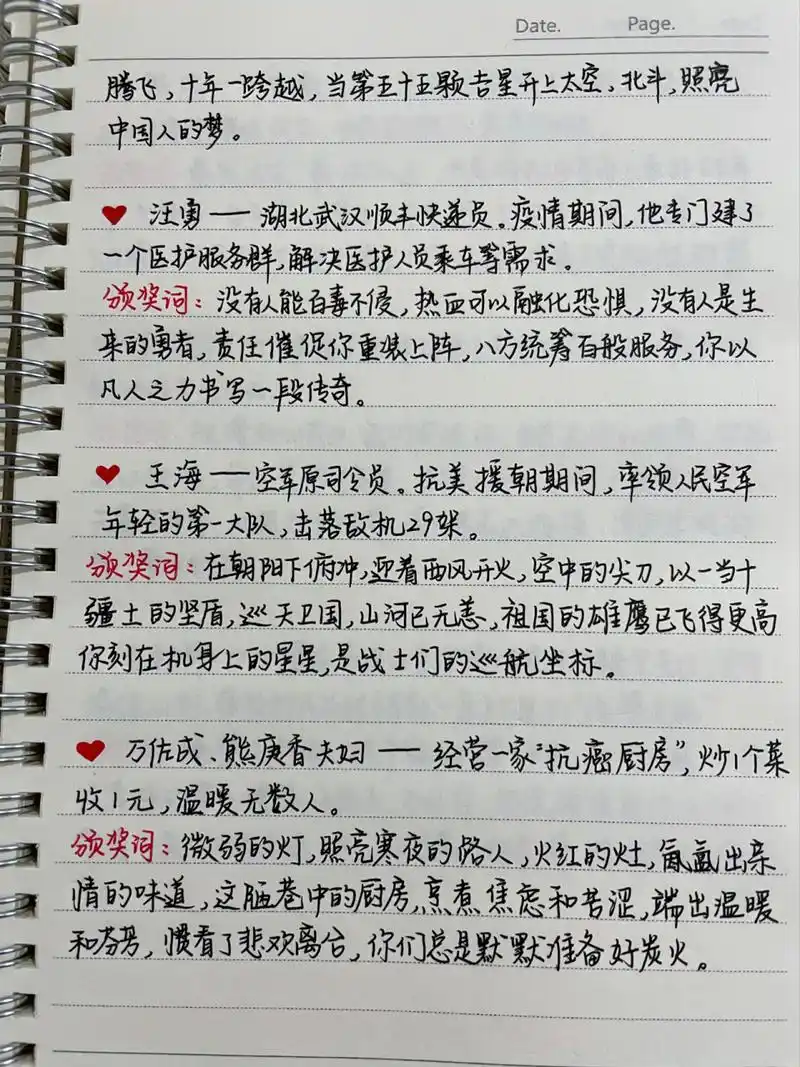 Date. Page.
腾飞，十年一跨越，当第五十五颗吉星升上太空，北斗，照亮
中国人的梦。
♥ 汪勇——湖北武汉顺丰快递员。疫情期间，他专门建了
一个医护服务群，解决医护人员乘车等需求。
颁奖词：没有人能百毒不侵，热血可以融化恐惧，没有人是生
来的勇者，责任催促你重装上阵，八方统筹百般服务，你以
凡人之力书写一段传奇。
♥ 王海——空军原司令员。抗美援朝期间，率领人民空军
年轻的第一大队，击落敌机29架。
颁奖词：在朝阳下俯冲，迎着西风开火，空中的尖刀，以一当十
疆土的坚盾，巡天卫国，山河已无恙，祖国的雄鹰已飞得更高
你刻在机身上的星星，是战士们的巡航坐标。
♥ 万佐成、熊庚香夫妇——经营一家“抗癌厨房”，炒1个菜
收1元，温暖无数人。
颁奖词：微弱的灯，照亮寒夜的路人，火红的灶，氤氲出亲
情的味道，这陋巷中的厨房，烹煮焦虑和苦涩，端出温暖
和芬芳，惯看了悲欢离合，你们总是默默准备好炭火。